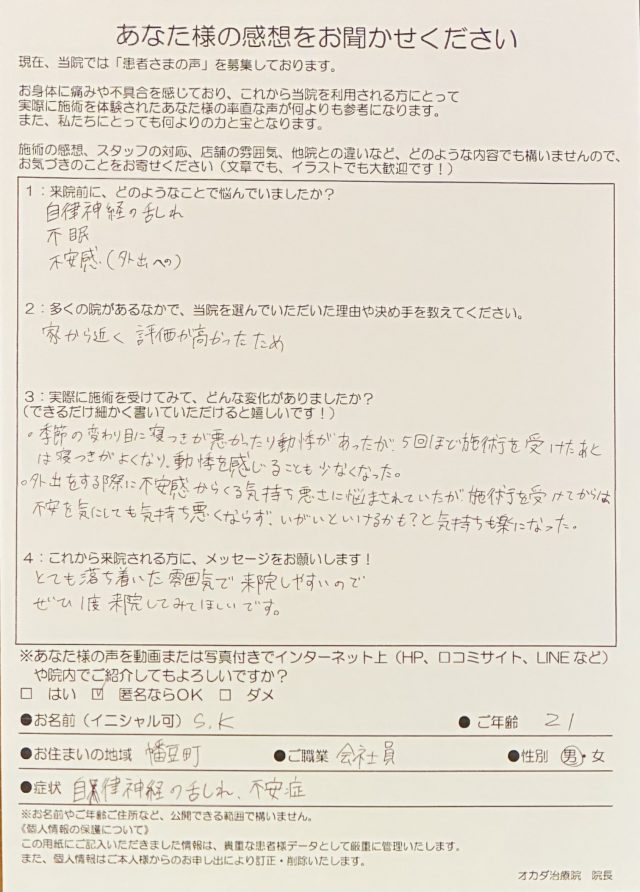 あなた様の感想をお聞かせください
現在、当院では「患者さまの声」を募集しております。
お身体に痛みや不具合を感じており、これから当院を利用される方にとって
実際に施術を体験されたあなた様の率直な声が何よりも参考になります。
また、私たちにとっても何よりの力と宝となります。
施術の感想、スタッフの対応、店舗の雰囲気、他院との違いなど、どのような内容でも構いませんので、
お気づきのことをお寄せください（文章でも、イラストでも大歓迎です！）
1：来院前に、どのようなことで悩んでいましたか？
自律神経の乱れ
不眠
不安感（外出への）
2：多くの院があるなかで、当院を選んでいただいた理由や決め手を教えてください。
家から近く 評価が高かったため
3：実際に施術を受けてみて、どんな変化がありましたか？
（できるだけ細かく書いていただけると嬉しいです！）
。季節の変わり目に寝つきが悪かったり動悸があったが、5回ほど施術を受けたあと
は寝つきがよくなり、動悸を感じることも少なくなった。
。外出をする際に不安感からくる気持ち悪さに悩まされていたが施術を受けてからは
不安を気にしても気持ち悪くならず、いがいといけるかも？と気持ちも楽になった。
4：これから来院される方に、メッセージをお願いします！
とても落ち着いた雰囲気で来院しやすいので
ぜひ1度来院してみてほしいです。
※あなた様の声を動画または写真付きでインターネット上（HP、口コミサイト、LINEなど）
や院内でご紹介してもよろしいですか？
□ はい ☑ 匿名ならOK □ ダメ
●お名前（イニシャル可） S.K ● ご年齢 21
●お住まいの地域 幡豆町 ●ご職業 会社員 ●性別 男・女
●症状 自律神経の乱れ、不安症
※お名前やご年齢ご住所など、公開できる範囲で構いません。
《個人情報の保護について》
この用紙にご記入いただきました情報は、貴重な患者様データとして厳重に管理いたします。
また、個人情報はご本人様からのお申し出により訂正・削除いたします。
オカダ治療院 院長